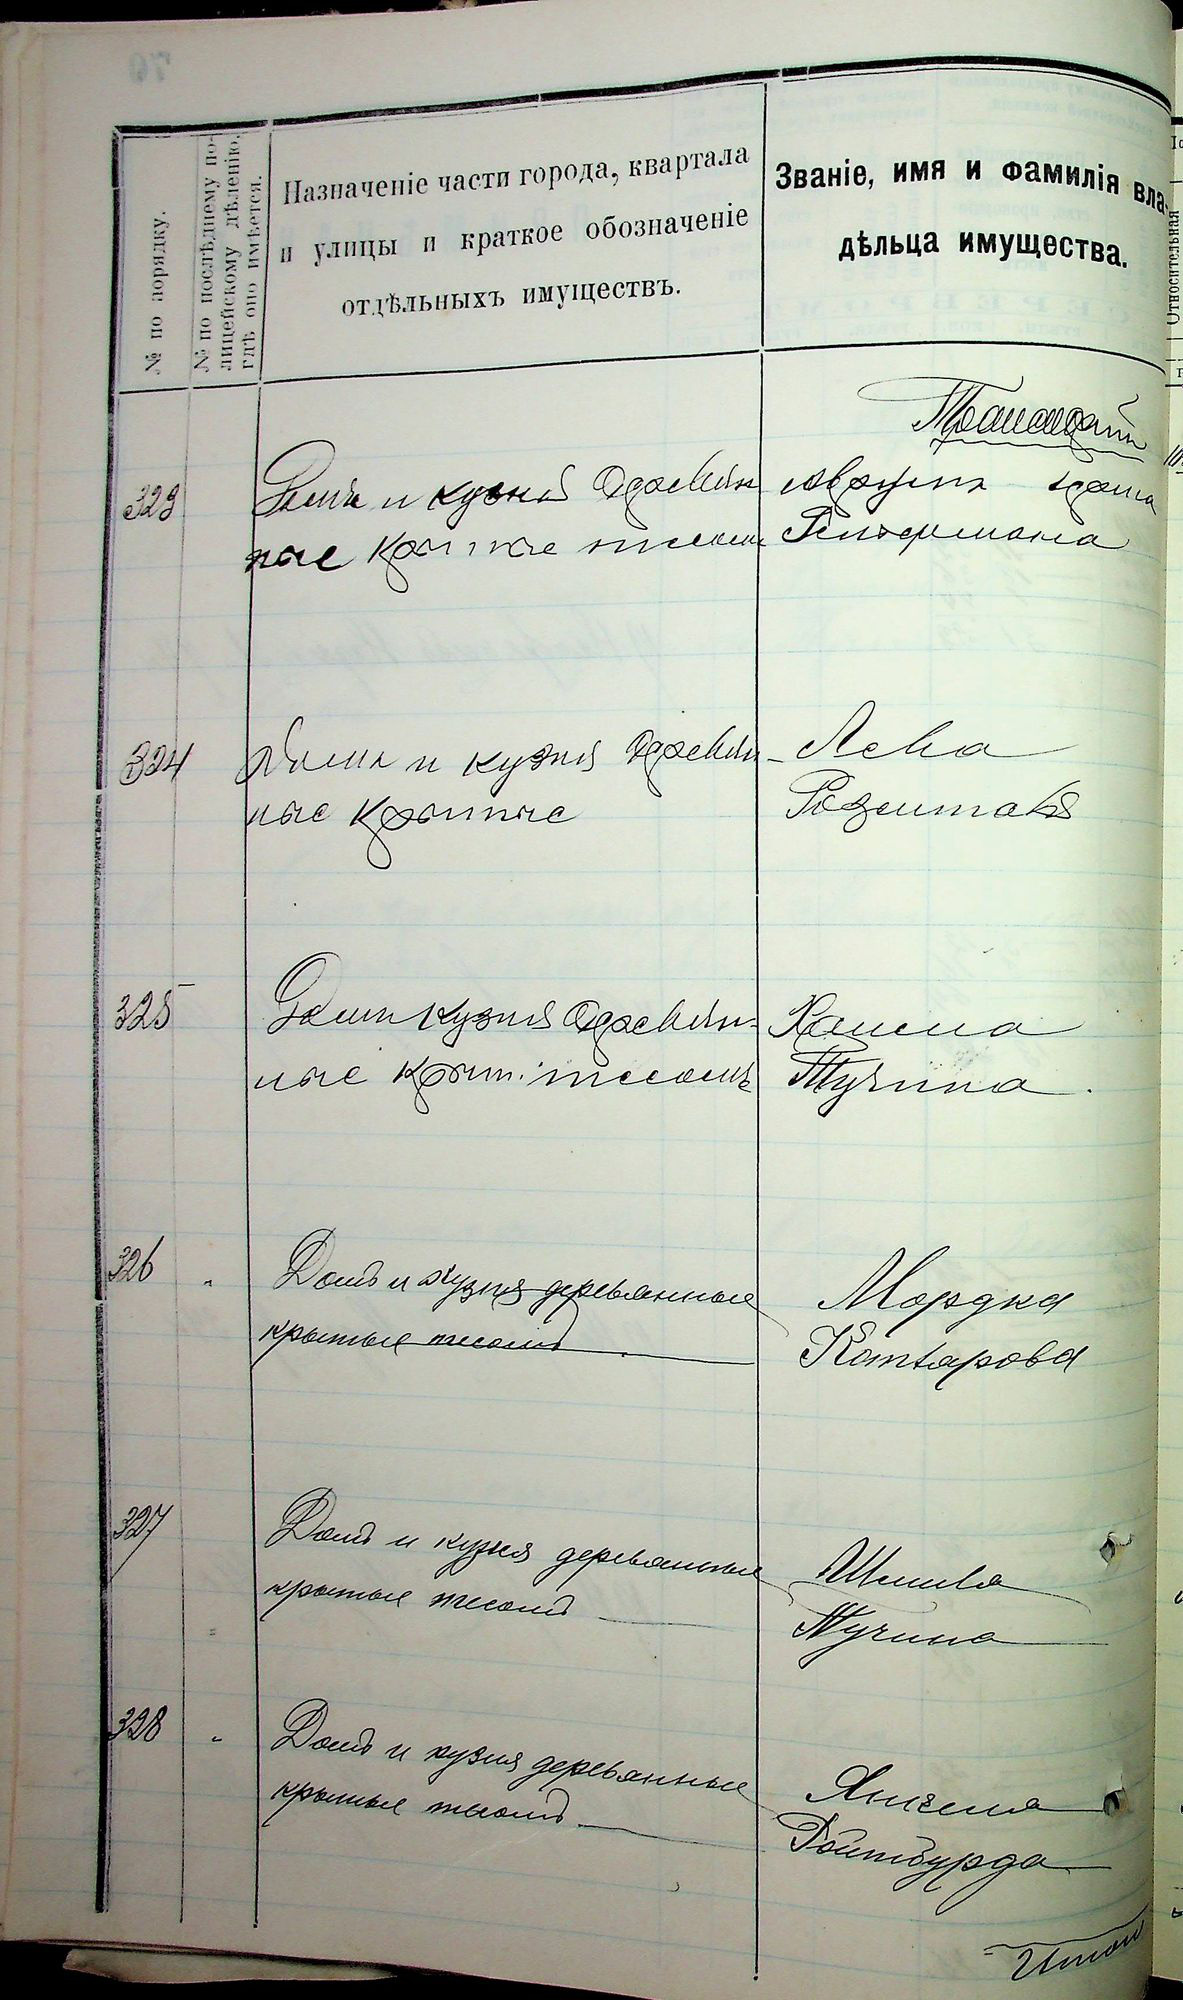 № по порядку.
№ по послѣднему по-
лицейскому дѣленію,
гдѣ оно имѣется.
Назначеніе части города, квартала
и улицы и краткое обозначеніе
отдѣльныхъ имуществъ.
Званіе, имя и фамилія вла-
дѣльца имущества.
Транспортъ
323 Домъ и кузня деревян
ные крытые тесомъ
324 Домъ и кузня деревян-
ные крытые
Лейба
325 Домъ кузня деревян-
ные крыт. тесомъ
Хаима
Тучина.
326 " Домъ и кузня деревянные
крытые тесомъ
Мордка
Котлярова
327 " Домъ и кузня деревянные
крытые тесомъ
Шлиова
Тучина
328 " Домъ и кузня деревянные
крытые тесомъ
Янкеля
Ройтбурда
Итого